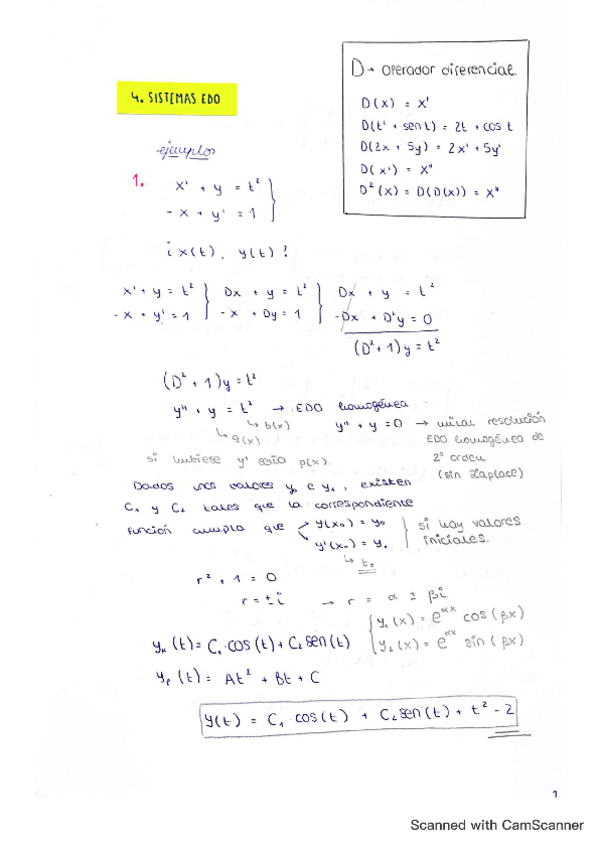 D → operador diferencial
D(x) = x'
D(t² + sen t) = 2t + cos t
D(2x + 5y) = 2x' + 5y'
D(x') = x''
D²(x) = D(D(x)) = x''
4. SISTEMAS EDO
ejemplos
1.
x' + y = t²
- x + y' = 1
¿ x(t), y(t) ?
x' + y = t² } Dx + y = t² } Dx + y = t²
- x + y' = 1 } - x + Dy = 1 } -Dx + D²y = 0
(D²+1)y = t²
(D²+1)y = t²
y'' + y = t² → EDO homogénea
↳ b(x)
↳ q(x)
y'' + y = 0 → mirar resolución
EDO homogénea de
2º orden
(sin Laplace)
si hubiese y' sería p(x).
Dados unos valores y₀ e y₁, existen
C₁ y C₂ tales que la correspondiente
función cumpla que
y(x₀) = y₀
y'(x₀) = y₁
↳ t₀
si hay valores
iniciales.
r² + 1 = 0
r = ± i → r = α ± βi
y₁(x) = e^αx cos(βx)
y₂(x) = e^αx sin(βx)
yH(t) = C₁·cos(t) + C₂ sen(t)
yP(t) = At² + Bt + C
y(t) = C₁·cos(t) + C₂ sen(t) + t² - 2
1
Scanned with CamScanner